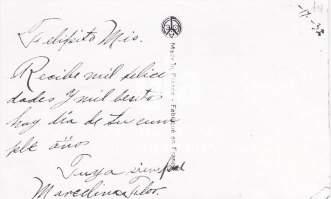 Felipito Mio.
Recibe mil felici
dades Y mil besito
hoy día de tu cum
ple años
Tuya siempre
Marcelina
Made in France - Fabriqué en France